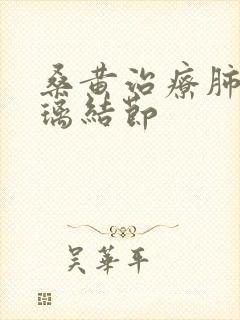 桑黄治療肺
璃結節
吴華平